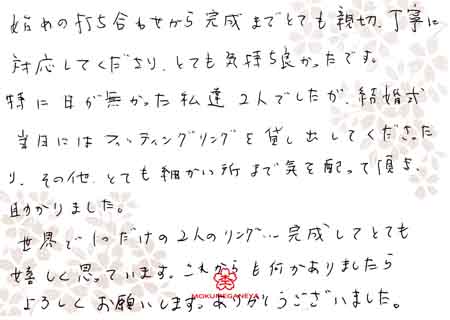 始めの打ち合わせから完成までとても親切、丁寧に
対応してくださり、とても気持ち良かったです。
特に日が無かった私達2人でしたが、結婚式
当日にはフィッティングリングを貸し出してくださった
り、その他、とても細かい所まで気を配って頂き、
助かりました。
世界で1つだけの2人のリング…完成してとても
嬉しく思っています。これからも何かありましたら
よろしくお願いします。ありがとうございました。
MOKUMEGANEYA